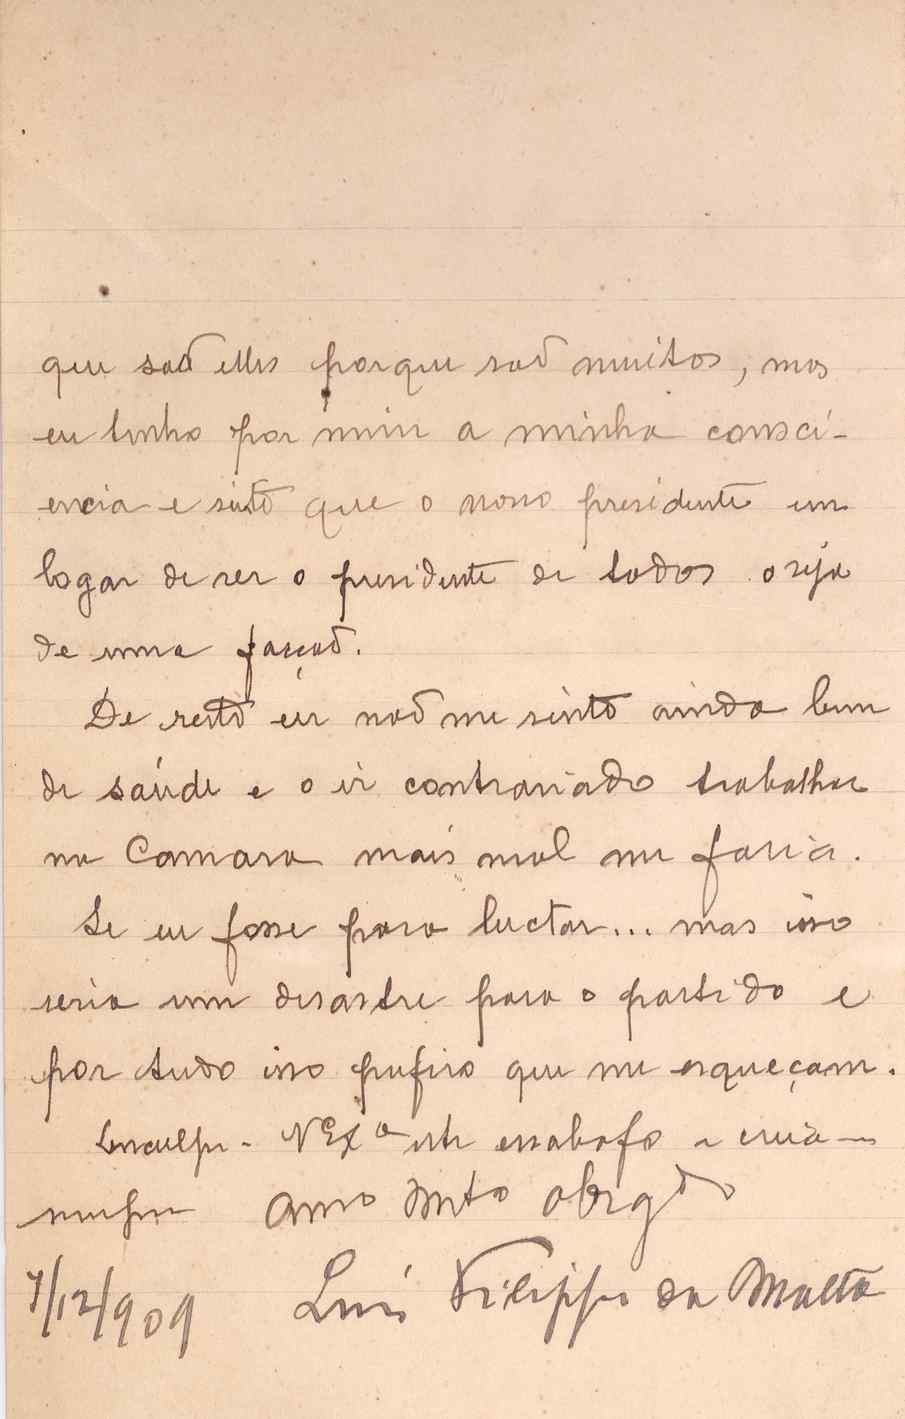 que são elles porque são muitos, mas
eu tenho por mim a minha consci-
encia e sinto que o nosso presidente em
logar de ser o presidente de todos o seja
de uma facção.
De resto eu não me sinto ainda bem
de saúde e o ir contrariado trabalhar
na Camara mais mal me faria.
Se eu fosse para luctar... mas isso
seria um desastre para o partido e
por tudo isso prefiro que me esqueçam.
Desculpe V Exª este desabafo e creia-me
sempre Amo Mto Obrgdo
7/12/909 Luis Filippe da Matta